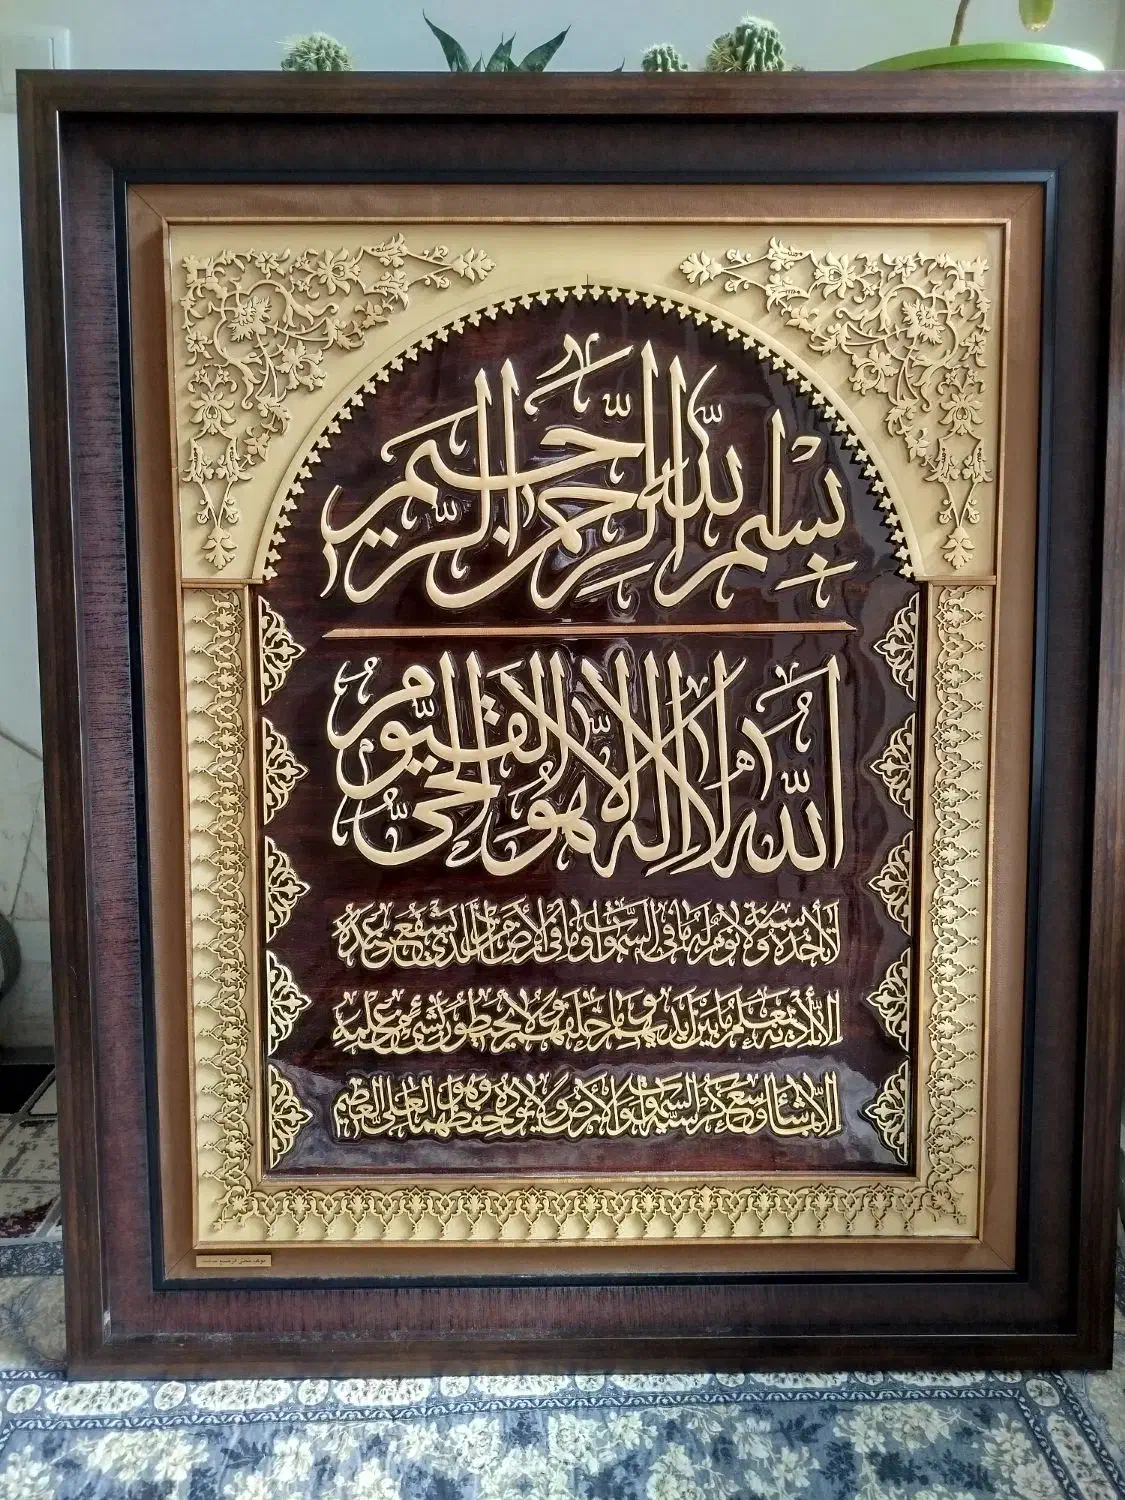 بِسْمِ اللّٰهِ الرَّحْمٰنِ الرَّحِیمِ
اَللّٰهُ لَا اِلٰهَ اِلَّا هُوَ الْحَیُّ الْقَیُّومُ
لَا تَأْخُذُهُ سِنَةٌ وَلَا نَوْمٌ لَهُ مَا فِی السَّمٰوَاتِ وَمَا فِی الْاَرْضِ مَنْ ذَا الَّذِی یَشْفَعُ عِنْدَهُ
اِلَّا بِاِذْنِهِ یَعْلَمُ مَا بَیْنَ اَیْدِیهِمْ وَمَا خَلْفَهُمْ وَلَا یُحِیطُونَ بِشَیْءٍ مِنْ عِلْمِهِ
اِلَّا بِمَا شَاءَ وَسِعَ کُرْسِیُّهُ السَّمٰوَاتِ وَالْاَرْضَ وَلَا یَؤُدُهُ حِفْظُهُمَا وَهُوَ الْعَلِیُّ الْعَظِیمُ